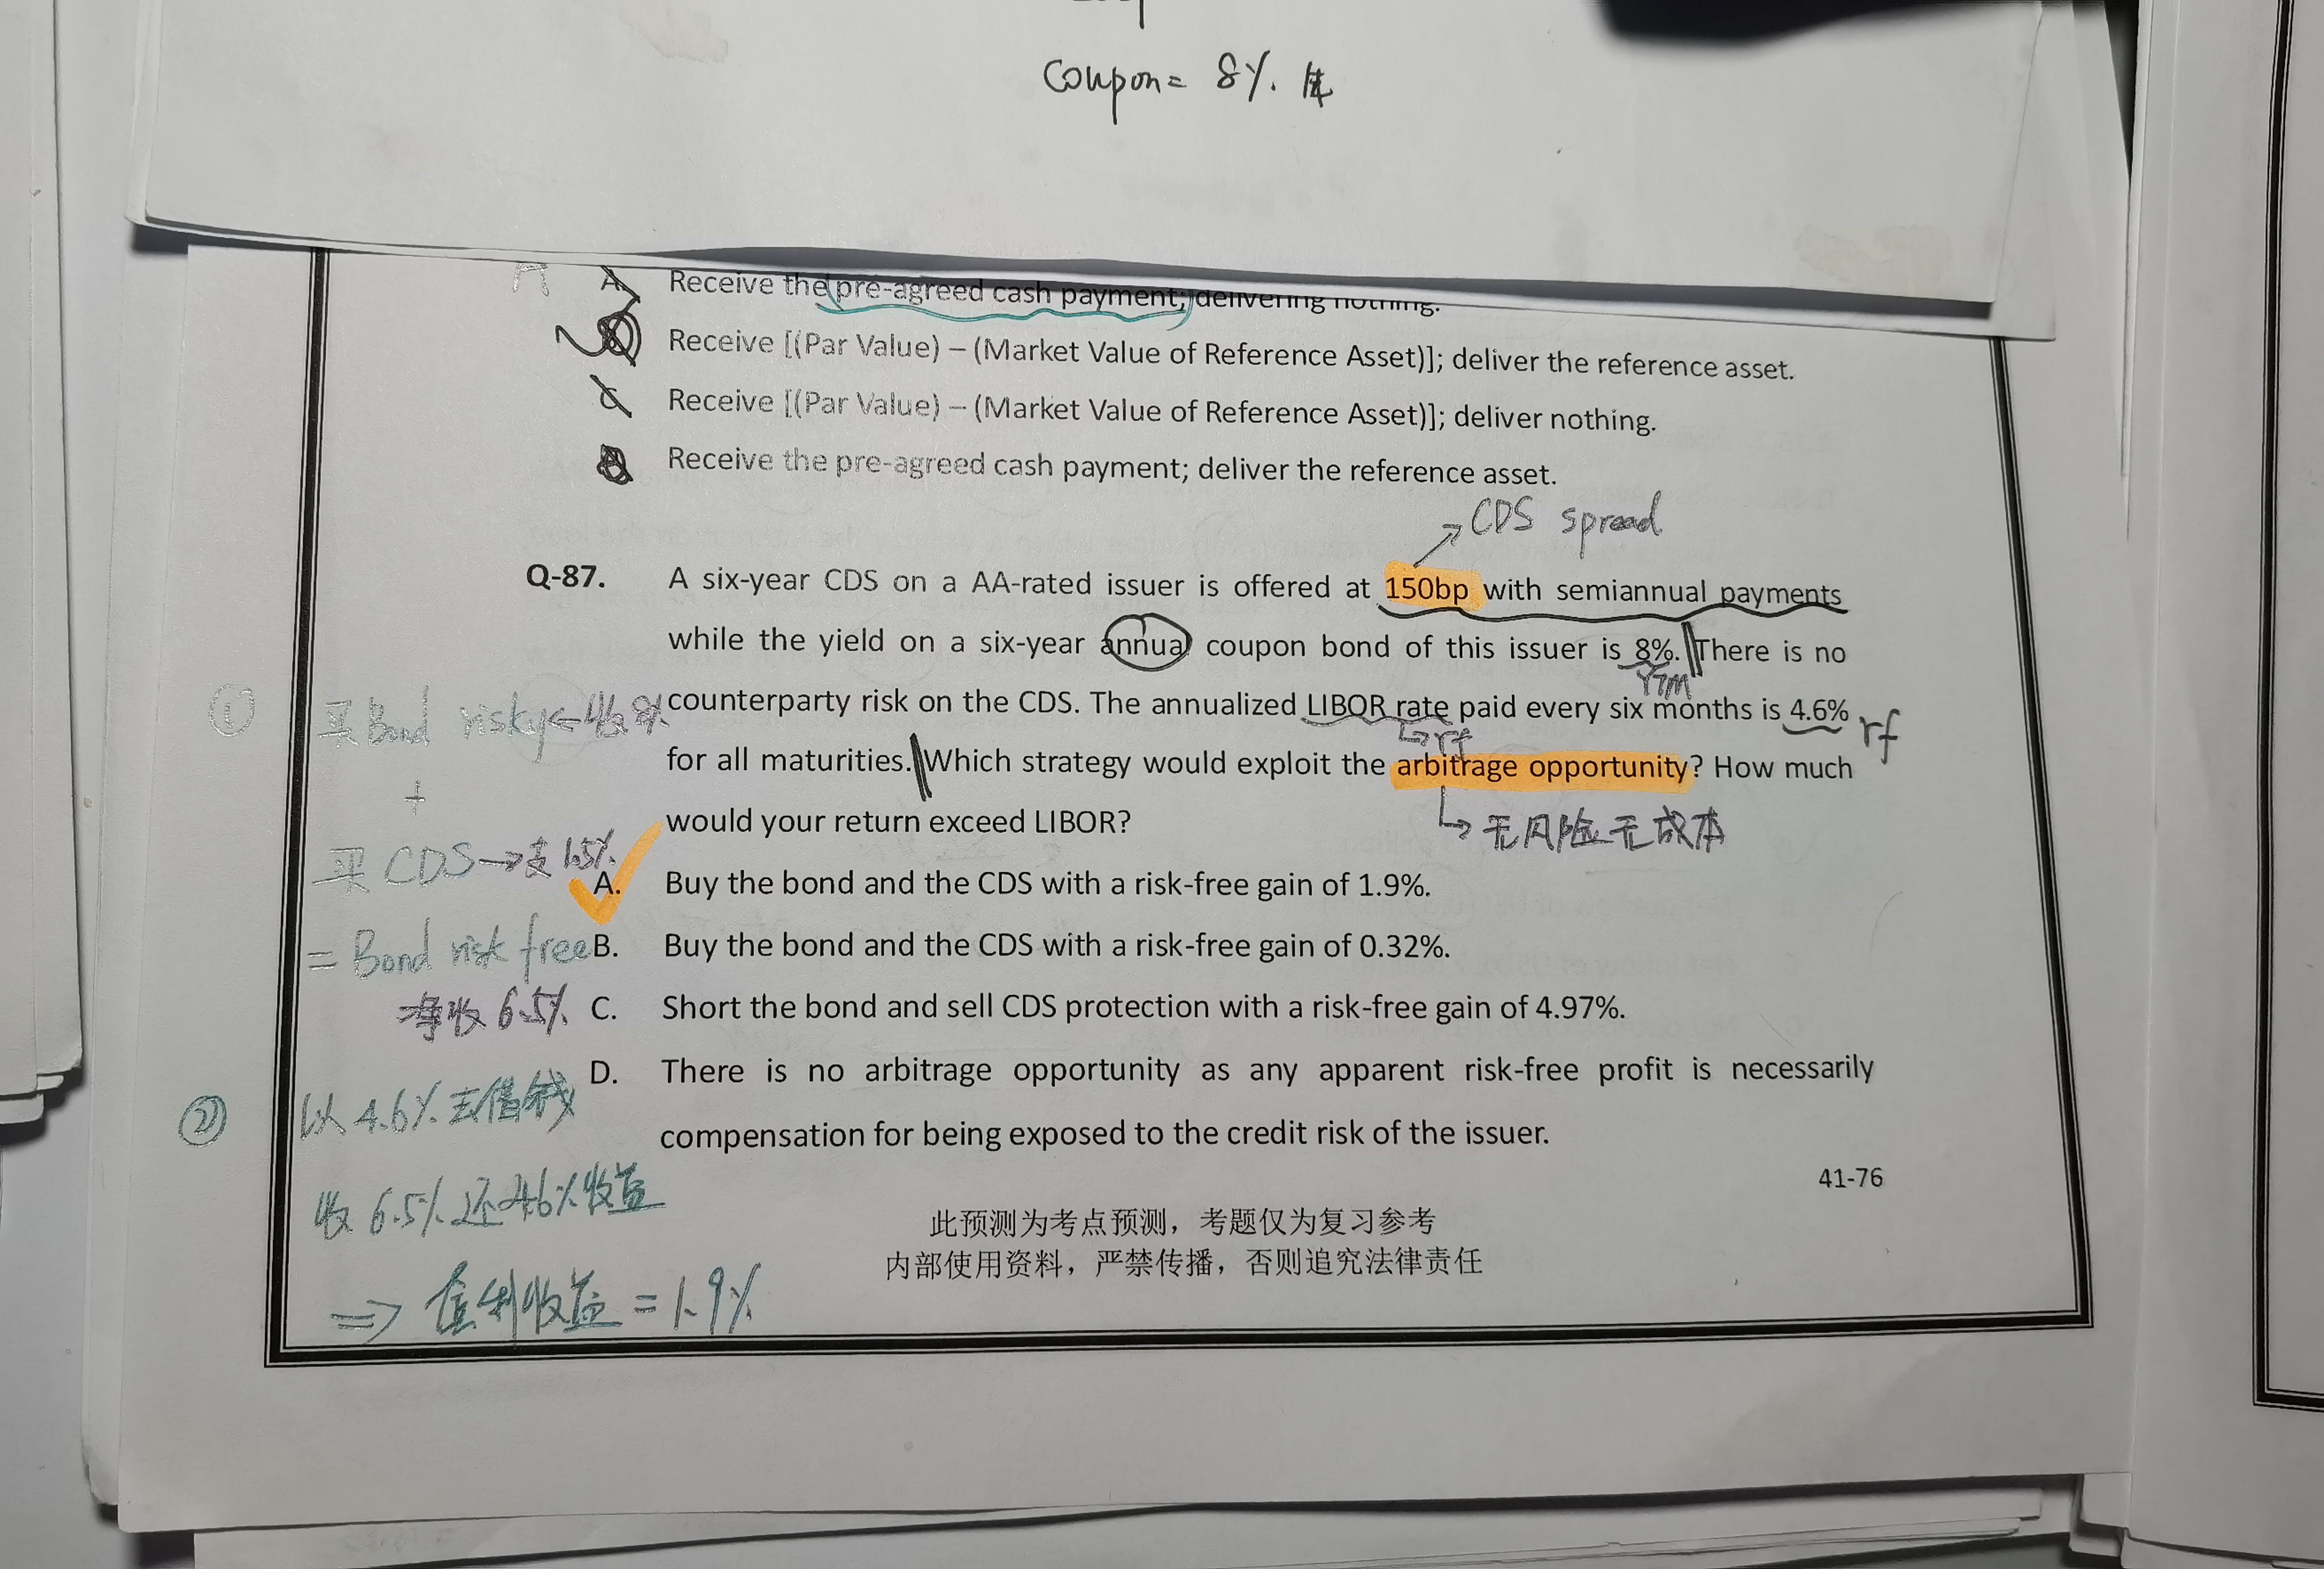 Coupon= 8%.
A. Receive the pre-agreed cash payment; delivering nothing.
Receive [(Par Value) – (Market Value of Reference Asset)]; deliver the reference asset.
C. Receive [(Par Value) – (Market Value of Reference Asset)]; deliver nothing.
Receive the pre-agreed cash payment; deliver the reference asset.
CDS spread
Q-87. A six-year CDS on a AA-rated issuer is offered at 150bp with semiannual payments
while the yield on a six-year annual coupon bond of this issuer is 8%. There is no
YTM
① 买Bond risky←收8% counterparty risk on the CDS. The annualized LIBOR rate paid every six months is 4.6% rf
rf
for all maturities. Which strategy would exploit the arbitrage opportunity? How much
+
would your return exceed LIBOR?
无风险无成本
买 CDS→支1.5%
A. Buy the bond and the CDS with a risk-free gain of 1.9%.
= Bond risk free
B. Buy the bond and the CDS with a risk-free gain of 0.32%.
净收 6.5%
C. Short the bond and sell CDS protection with a risk-free gain of 4.97%.
D. There is no arbitrage opportunity as any apparent risk-free profit is necessarily
② 以4.6%去借钱
compensation for being exposed to the credit risk of the issuer.
41-76
收6.5%还4.6%收益
此预测为考点预测，考题仅为复习参考
内部使用资料，严禁传播，否则追究法律责任
⇒ 套利收益=1.9%